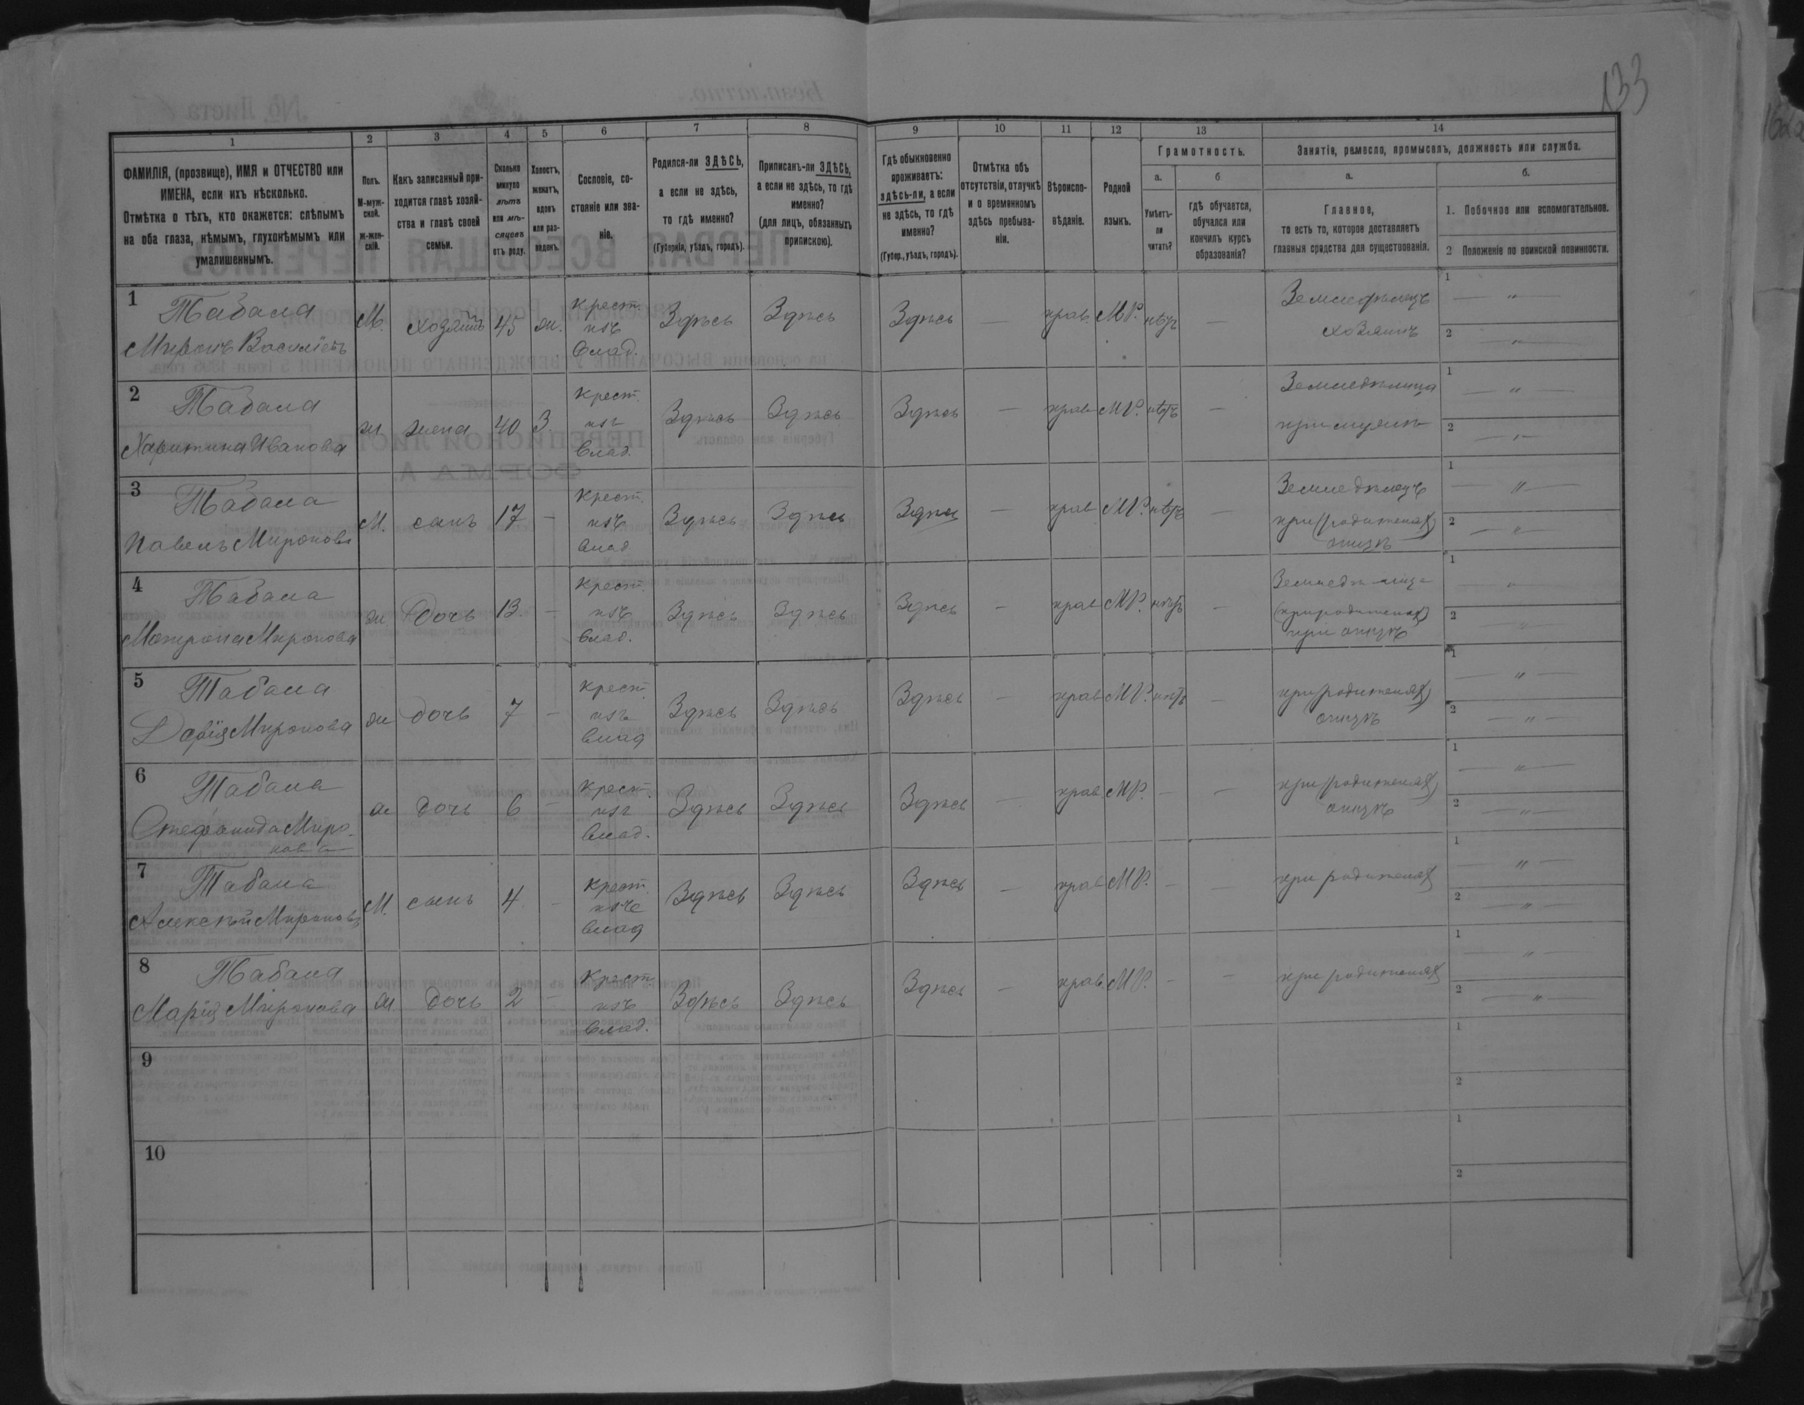 133
1 2 3 4 5 6 7 8 9 10 11 12 13 14
ФАМИЛІЯ, (прозвище), ИМЯ и ОТЧЕСТВО или
ИМЕНА, если ихъ нѣсколько.
Отмѣтка о тѣхъ, кто окажется: слѣпымъ
на оба глаза, нѣмымъ, глухонѣмымъ или
умалишеннымъ.
Полъ.
М-муж-
ской.
Ж-жен-
скій.
Какъ записанный при-
ходится главѣ хозяй-
ства и главѣ своей
семьи.
Сколько
минуло
лѣтъ
или мѣ-
сяцевъ
отъ роду.
Холостъ,
женатъ,
вдовъ
или раз-
веденъ.
Сословіе, со-
стояніе или зва-
ніе.
Родился-ли ЗДѢСЬ,
а если не здѣсь,
то гдѣ именно?
(Губернія, уѣздъ, городъ).
Приписанъ-ли ЗДѢСЬ,
а если не здѣсь, то гдѣ
именно?
(для лицъ, обязанныхъ
припискою).
Гдѣ обыкновенно
проживаетъ:
здѣсь-ли, а если
не здѣсь, то гдѣ
именно?
(Губер., уѣздъ, городъ).
Отмѣтка объ
отсутствіи, отлучкѣ
и о временномъ
здѣсь пребыва-
ніи.
Вѣроиспо-
вѣданіе.
Родной
языкъ.
Грамотность.
а. б
Умѣетъ-
ли
читать?
гдѣ обучается,
обучался или
кончилъ курсъ
образованія?
Занятія, ремесло, промыселъ, должность или служба.
а. б.
Главное,
то есть то, которое доставляетъ
главныя средства для существованія.
1. Побочное или вспомогательное.
2 Положеніе по воинской повинности.
1 Табала
Миронъ Васильевъ
М. хозяинъ 45 ж.
Крест.
изъ
влад.
Здѣсь Здѣсь Здѣсь — прав. М.Р. нѣтъ —
Земледѣлецъ
хозяинъ
1 — " —
2 — " —
2 Табала
Харитина Иванова
ж жена 40 З.
Крест.
изъ
влад.
Здѣсь Здѣсь Здѣсь — прав М.Р. нѣтъ —
Земледѣлица
при мужѣ
1 — " —
2 — " —
3 Табала
Павелъ Мироновъ
М. сынъ 17 —
Крест.
изъ
влад
Здѣсь Здѣсь Здѣсь — прав М.Р. нѣтъ —
Земледѣлецъ
при (родителях)
отцѣ
1 — " —
2 — " —
4 Табала
Матрона Миронова
ж Дочь 13 —
Крест.
изъ
влад.
Здѣсь Здѣсь Здѣсь — прав М.Р. нѣтъ —
Земледѣлица
(при родителях)
при отцѣ
1 "
2
5 Табала
Дарія Миронова
ж дочь 7 —
Крест.
изъ
влад
Здѣсь Здѣсь Здѣсь — прав М.Р. нѣтъ —
при (родителях)
отцѣ
1 — " —
2 — " —
6 Табала
Стефанида Миро-
нова
ж дочь 6 —
Крест.
изъ
влад.
Здѣсь Здѣсь Здѣсь — прав М.Р. — —
при (родителях)
отцѣ
1 — " —
2 — " —
7 Табала
Алексѣй Мироновъ
М. сынъ 4 —
Крест.
изъ
влад
Здѣсь Здѣсь Здѣсь — прав М.Р. — —
при родителях
1 — " —
2 — " —
8 Табала
Марія Миронова
ж дочь 2 —
Крест
изъ
влад.
Здѣсь Здѣсь Здѣсь — прав. М.Р. — —
при родителях
1 — " —
2 — " —
9
1
2
10
1
2